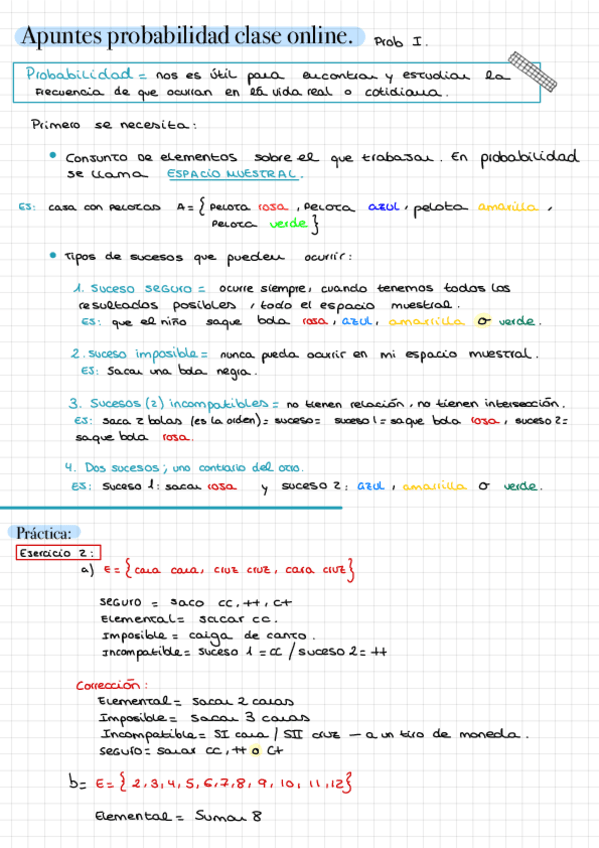 Apuntes probabilidad clase online. Prob I.
Probabilidad = nos es útil para encontrar y estudiar la
frecuencia de que ocurran en la vida real o cotidiana.
Primero se necesita:
• Conjunto de elementos sobre el que trabajar. En probabilidad
se llama ESPACIO MUESTRAL.
EJ: casa con pelotas A = { pelota rosa, pelota azul, pelota amarilla,
pelota verde }
• Tipos de sucesos que pueden ocurrir:
1. Suceso seguro = ocurre siempre, cuando tenemos todos los
resultados posibles, todo el espacio muestral.
EJ: que el niño saque bola rosa, azul, amarilla o verde.
2. suceso imposible = nunca pueda ocurrir en mi espacio muestral.
EJ: Sacar una bola negra.
3. Sucesos (2) incompatibles = no tienen relación, no tienen intersección.
EJ: saca 2 bolas (es la orden) = suceso = suceso 1 = saque bola rosa, suceso 2 =
saque bola rosa.
4. Dos sucesos; uno contrario del otro.
EJ: suceso 1: sacar rosa y suceso 2: azul, amarilla o verde.
Práctica:
Ejercicio 2:
a) E = { cara cara, cruz cruz, cara cruz }
Seguro = saco cc, ++, c+
Elemental = sacar cc.
Imposible = caiga de canto.
Incompatible = suceso 1 = cc / suceso 2 = ++
Corrección:
Elemental = Sacar 2 caras
Imposible = Sacar 3 caras
Incompatible = SI cara / SII cruz — a un tiro de moneda.
Seguro = sacar cc, ++ o c+
b = E = { 2, 3, 4, 5, 6, 7, 8, 9, 10, 11, 12 }
Elemental = Sumar 8